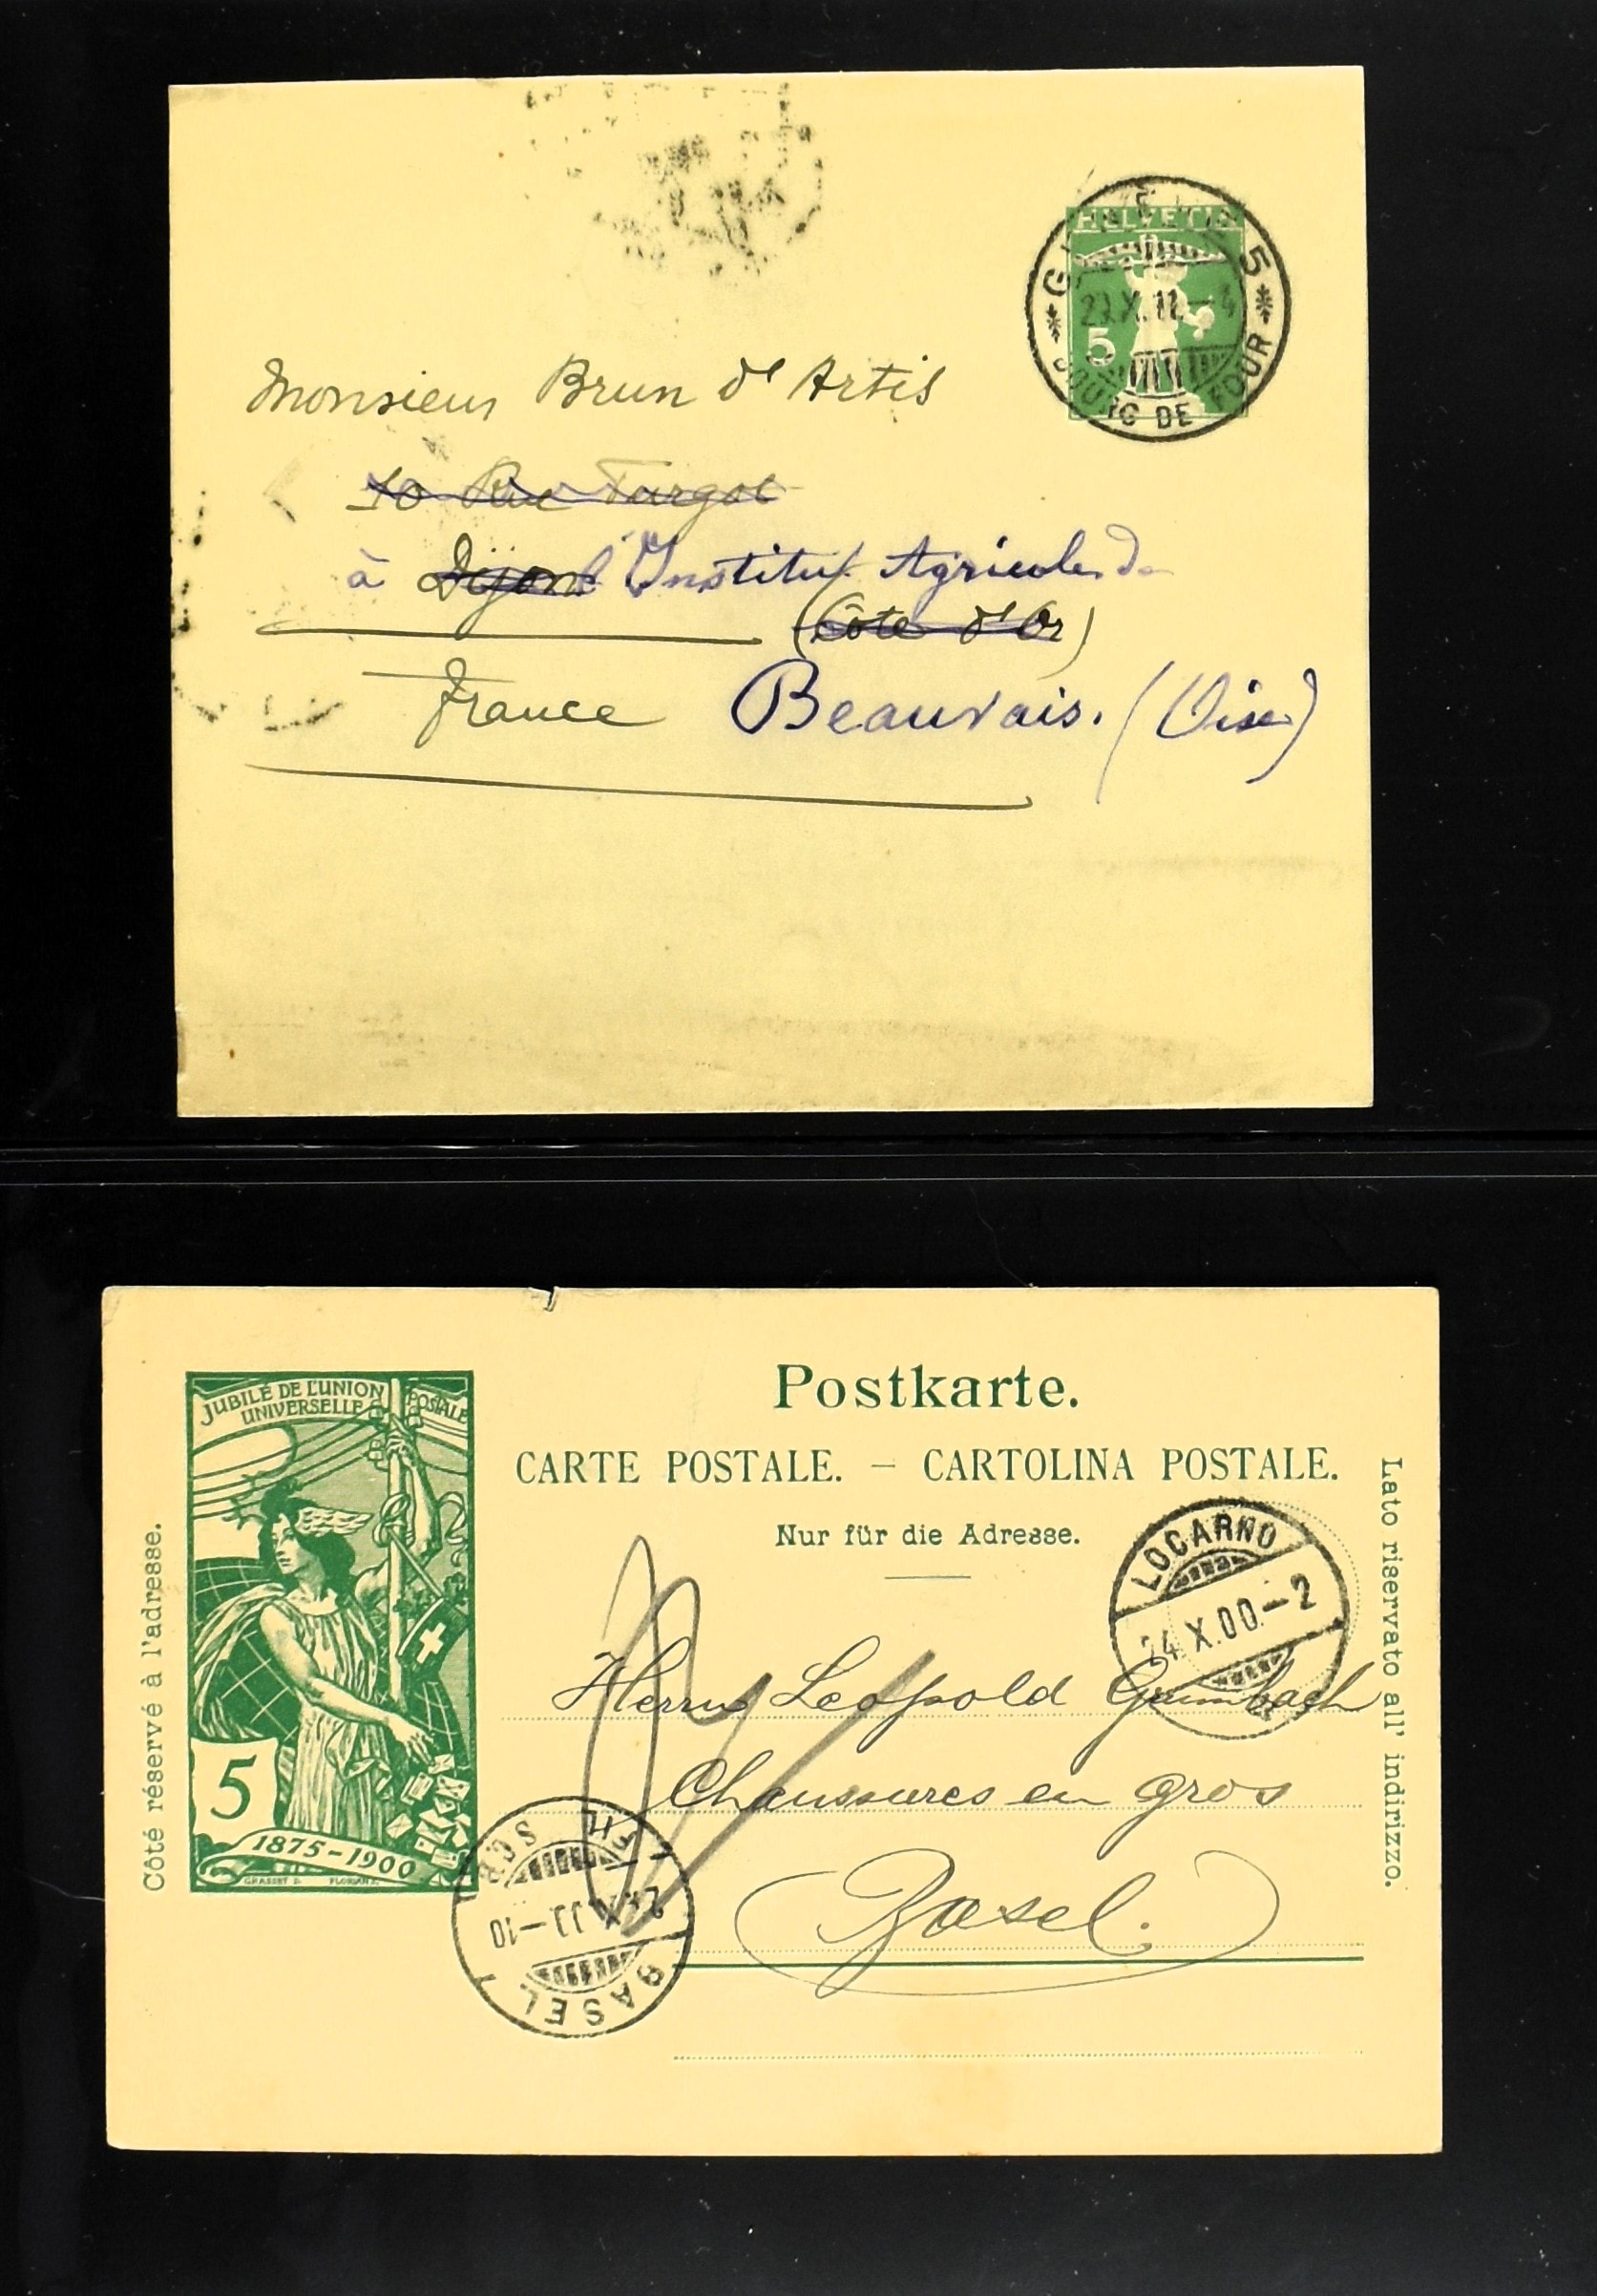 HELVETIA
5
27.X.11.-4
5
BOURG DE FOUR
Monsieur Brun d'Artis
10 Rue Turgot
à Dijon l'Institut Agricole de
(Côte d'Or)
France Beauvais. (Oise)
JUBILÉ DE L'UNION POSTALE
UNIVERSELLE
5
1875-1900
GRASSET D. FLORIAN
Côté réservé à l'adresse.
Postkarte.
CARTE POSTALE. – CARTOLINA POSTALE.
Nur für die Adresse.
Lato riservato all' indirizzo.
LOCARNO
X.00.-2
Herrn Leopold
Chaussures en gros
Basel.
BASEL
-10